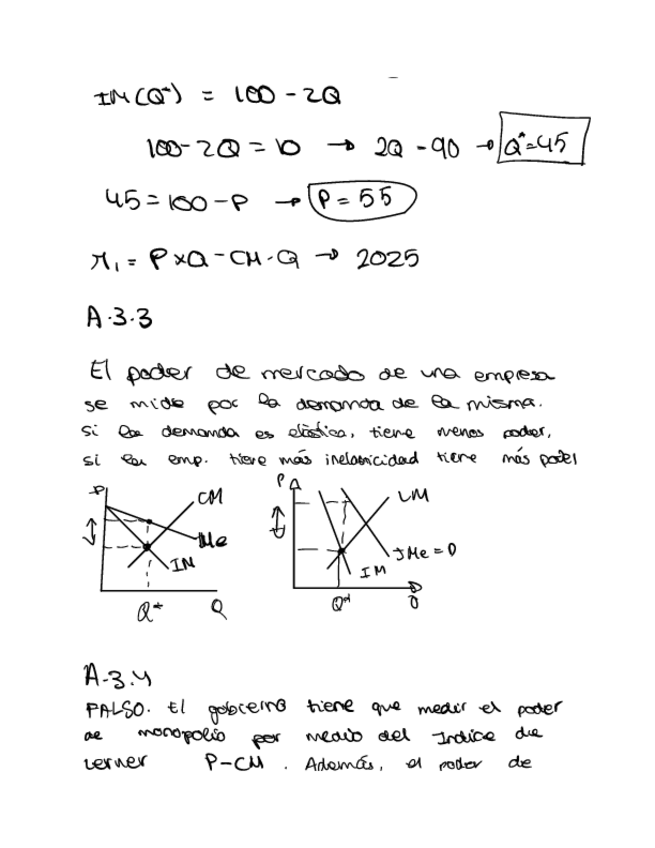 IM(Q*) = 100 - 2Q
100-2Q = 10 → 2Q - 90 → Q*=45
45 = 100 - P → P = 55
π₁ = P x Q - CM·Q → 2025
A.3.3
El poder de mercado de una empresa
se mide por la demanda de la misma.
Si la demanda es elástica, tiene menos poder,
si la emp. tiene más inelasticidad tiene más poder
P CM Me IN Q* Q
P CM IMe = D IM Q*
A.3.4
FALSO. El gobierno tiene que medir el poder
de monopolio por medio del Indice de
Lerner P-CM. Además, el poder de